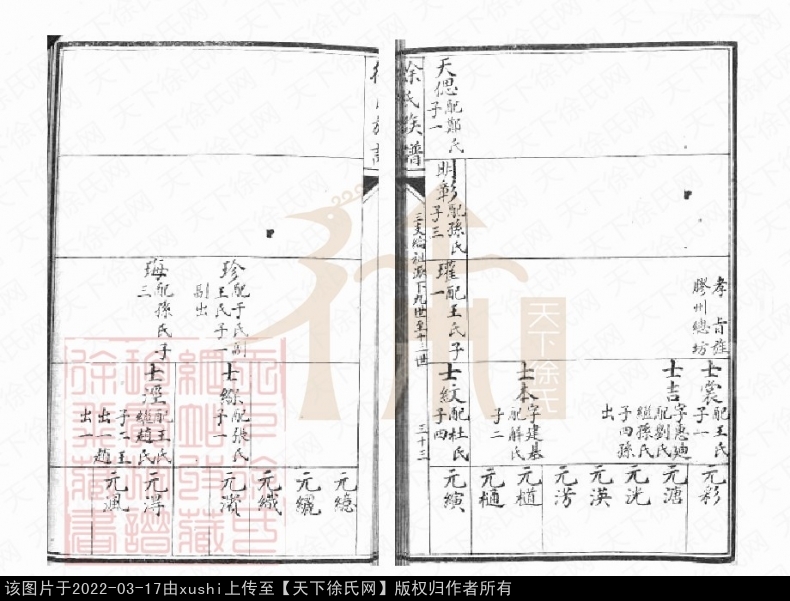 天偲配鄭氏
子一
明彰配孫氏
子三
瓘配王氏子
一
孝旨旌
膠州總坊
士裳配王氏
子一
士吉字惠廸
配劉氏
繼孫氏
子四孫
出
士本字建基
配解氏
子二
士紋配杜氏
子四
元彩
元溏
元洸
元漢
元汸
元樋
元縯
徐氏族譜
二支總祖源下九世至十三世
三十三
珍配于氏副
王氏子一
副出
配孫氏子
三
士綵配張氏
子一
配王氏
繼趙氏
子二王
出一趙
出一
元繶
元纖
元濱
元潯
元渢
天下徐氏
该图片于2022-03-17由xushi上传至【天下徐氏网】版权归作者所有